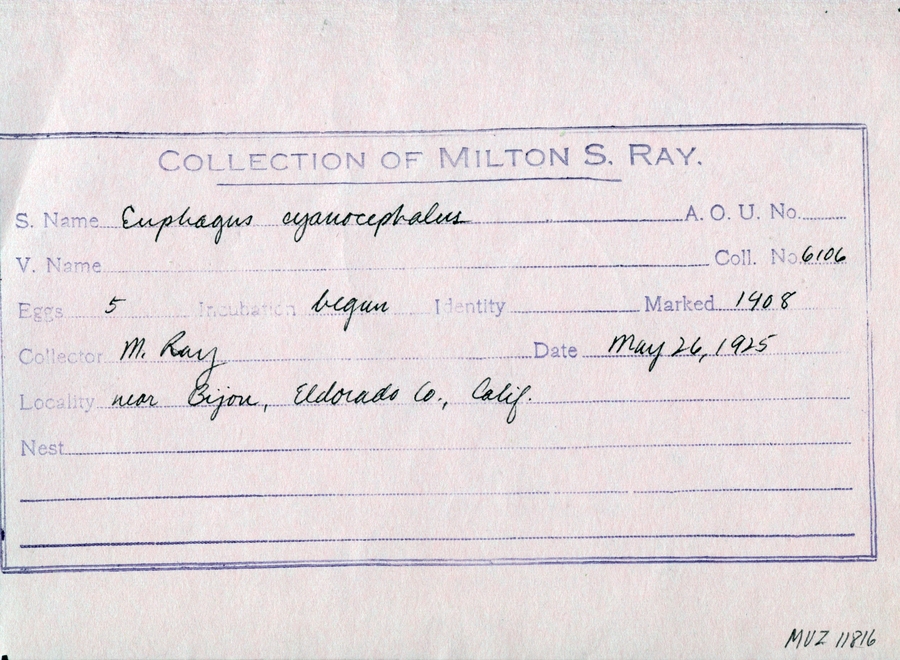 COLLECTION OF MILTON S. RAY.
S. Name Euphagus cyanocephalus A. O. U. No.
V. Name Coll. No 6106
Eggs 5 Incubation begun Identity Marked 1908
Collector M. Ray Date May 26, 1925
Locality near Bijou, Eldorado Co., Calif.
Nest
MVZ 11816